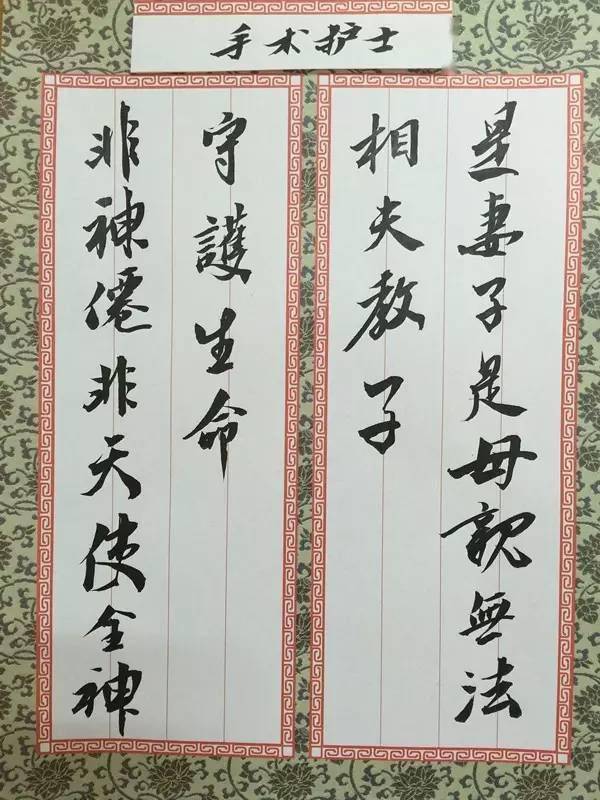 手术护士
是妻子是母親無法
相夫教子
非神僊非天使全神
守護生命